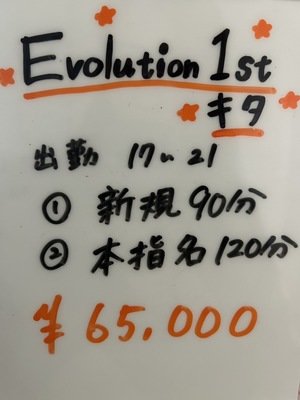 Evolution 1st
キタ
出勤 17〜21
① 新規90分
② 本指名120分
¥65,000